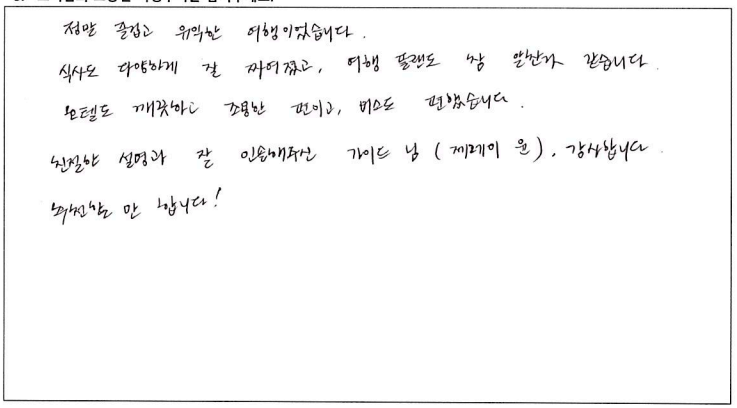 정말 즐겁고 유익한 여행이었습니다.
식사도 다양하게 잘 짜여졌고, 여행 플랜도 참 알찬거 같습니다
호텔도 깨끗하고 조용한 편이고, 버스도 편했습니다.
친절한 설명과 잘 인솔해주신 가이드 님 (제레미 윤), 감사합니다.
추천할 만 합니다!